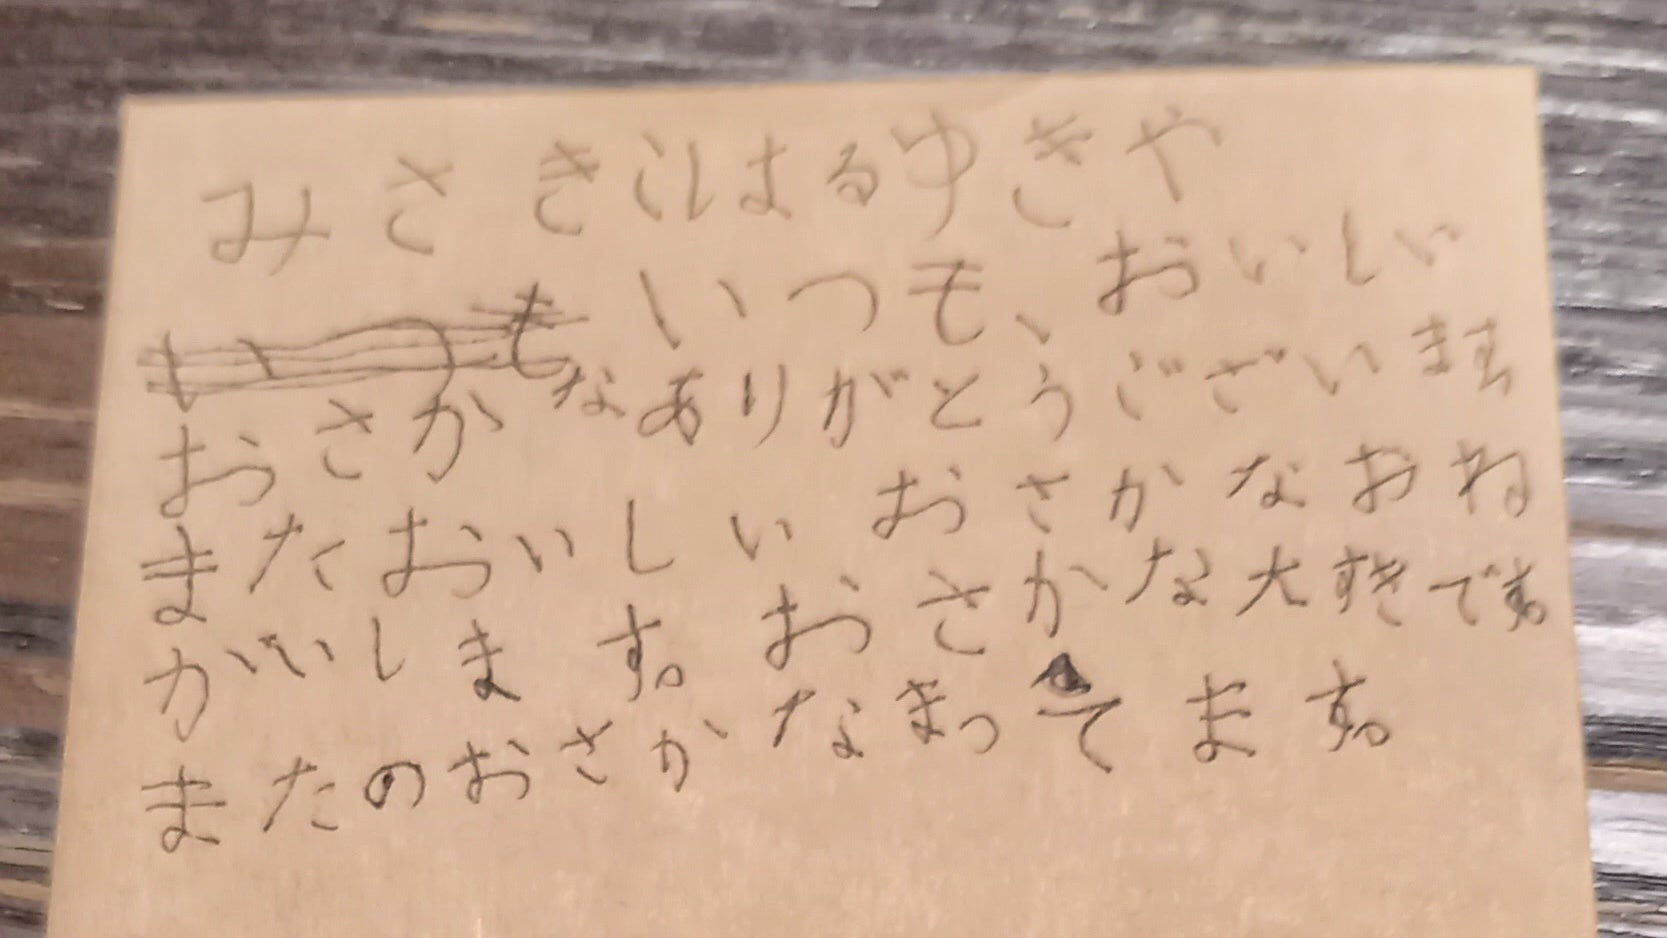 みさきこはるゆきや
いつも、おいしい
おさかなありがとうございます
またおいしいおさかなおね
がいします。おさかな大すきです。
またのおさかなまってます。